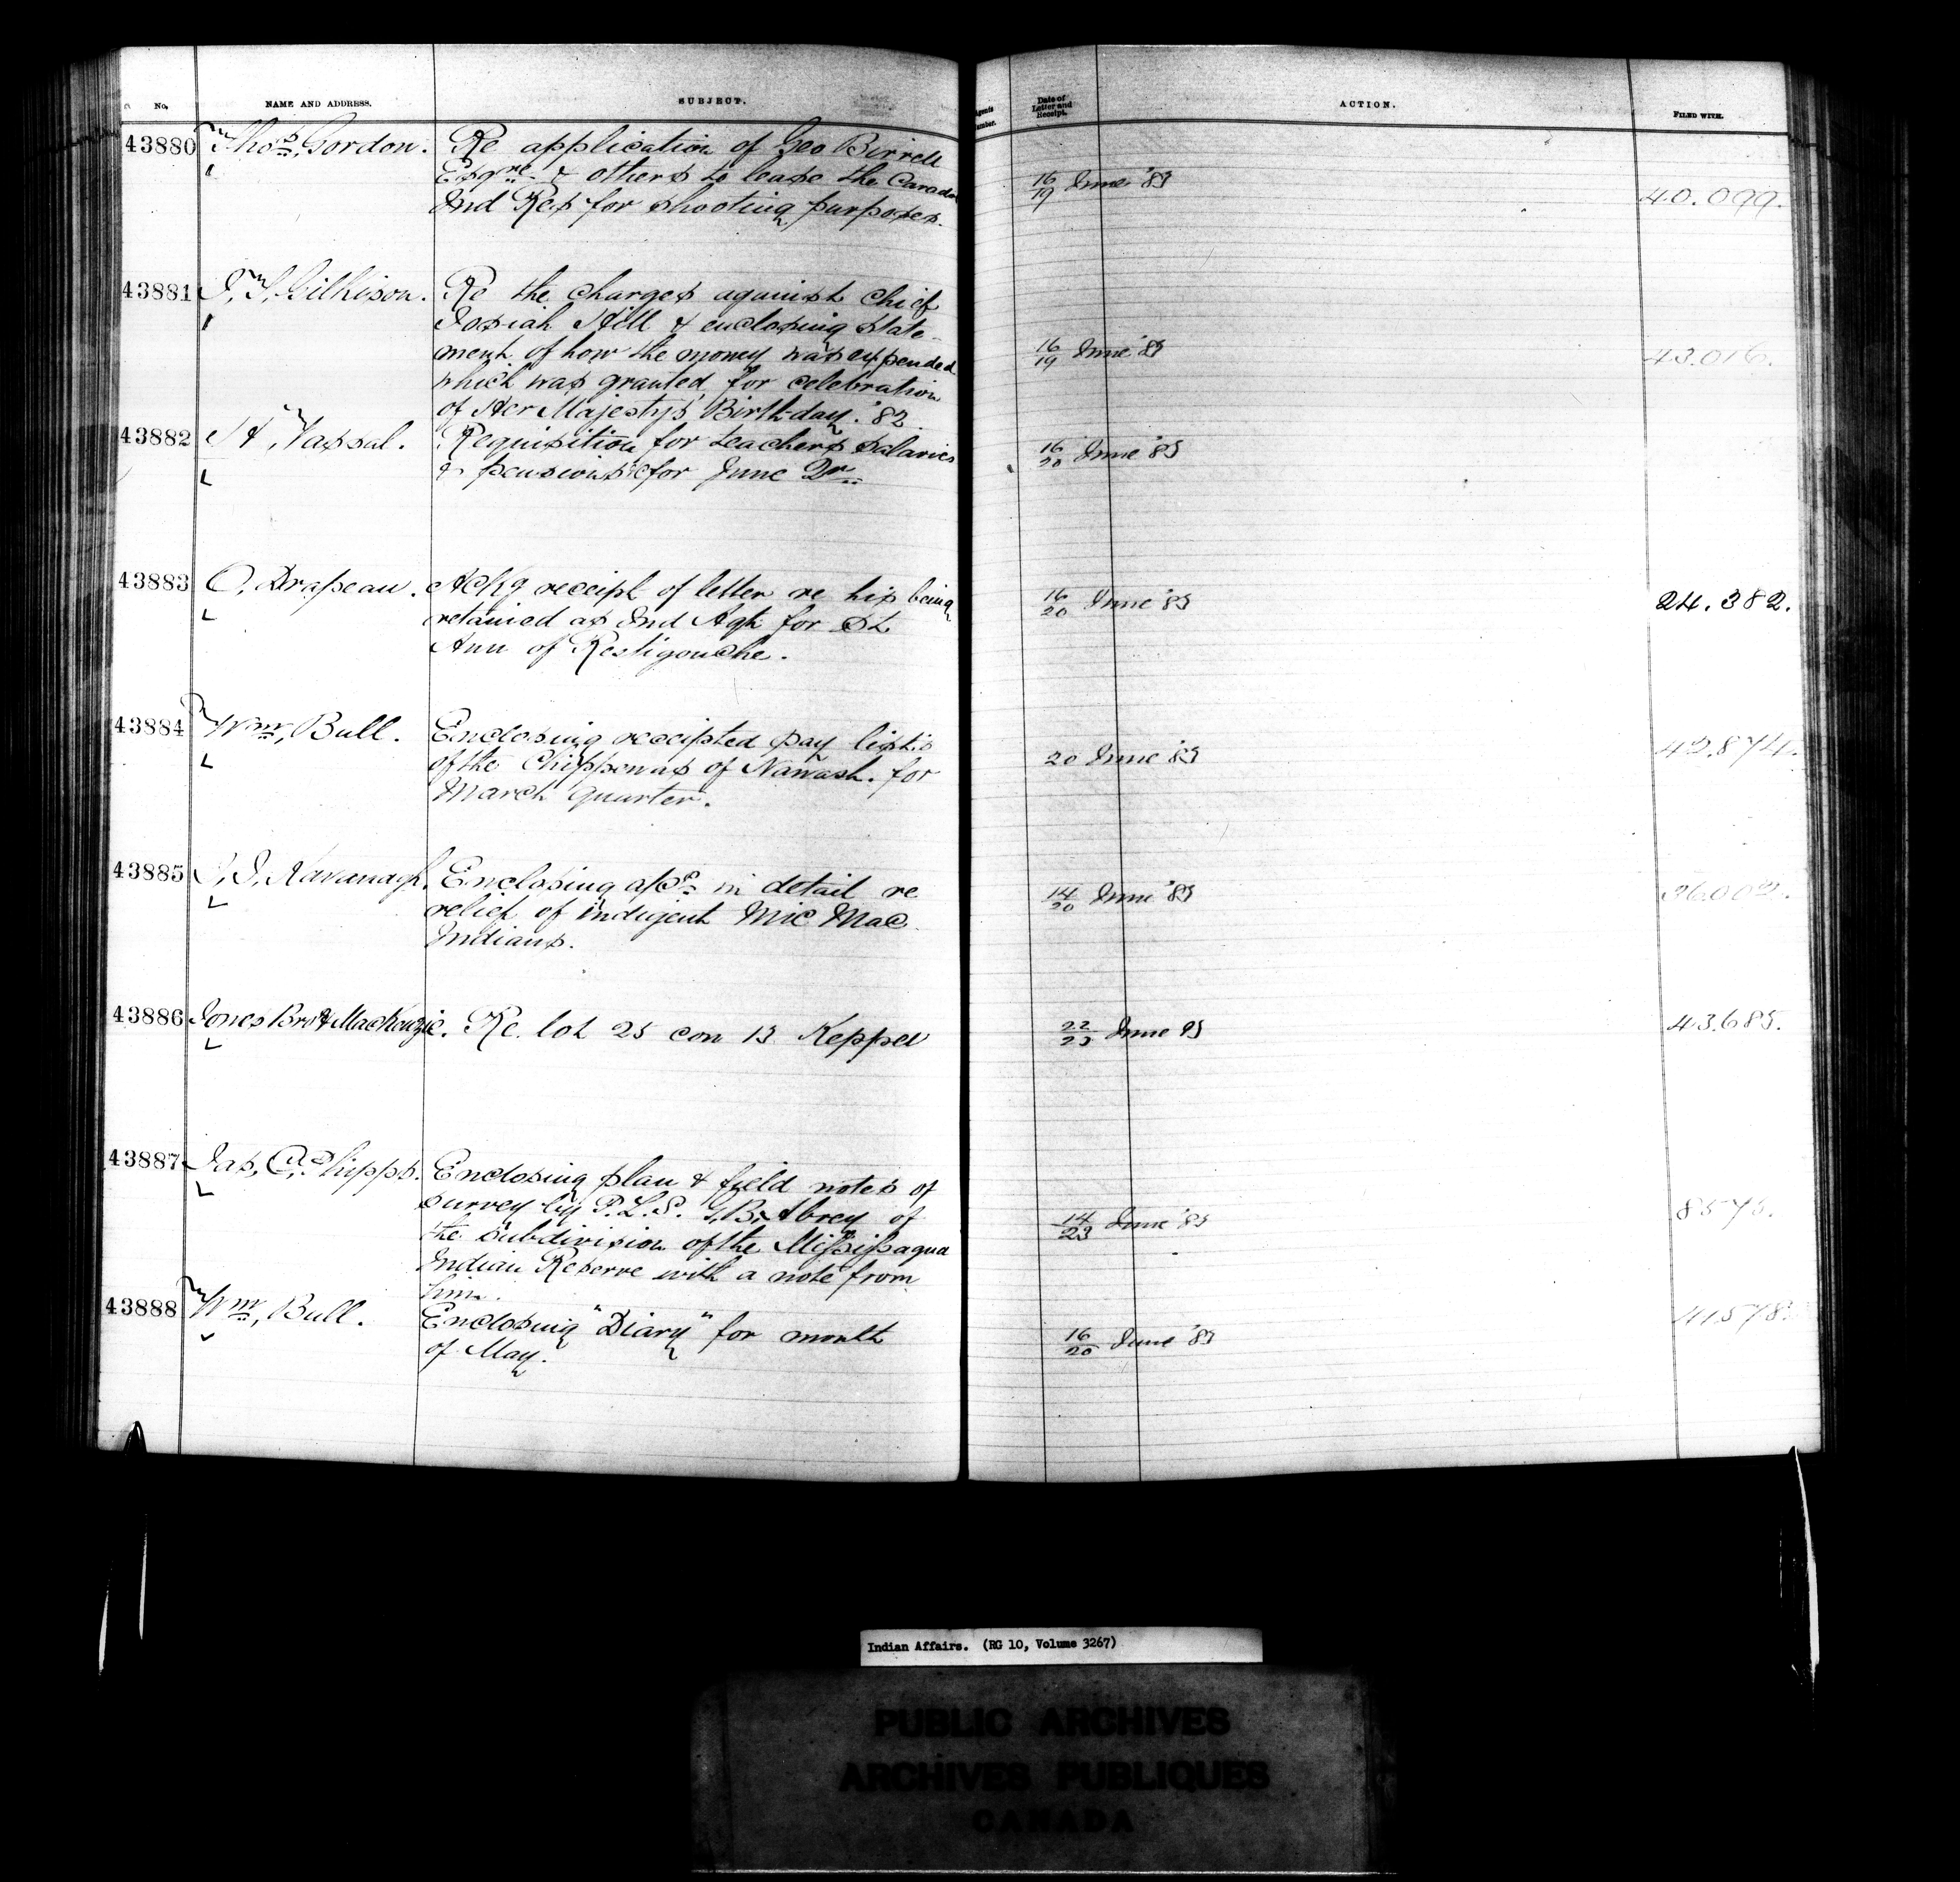 No. NAME AND ADDRESS. SUBJECT. Agents Number. Date of Letter and Receipt. ACTION. FILED WITH.
43880 Thos. Gordon. Re application of Geo Birrell
Esqre & others to lease the Caradoc
Ind Res for shooting purposes.
16/19 June '83 40.099.
43881 J. T. Gilkison. Re the charges against Chief
Josiah Hill & enclosing state-
ment of how the money was expended
which was granted for celebration
of Her Majesty's Birthday. '82.
16/19 June '83 43.016.
43882 H. Vassal. Requisition for teachers salaries
& pensions &c for June Qr.
16/20 June '83
43883 O. Drapeau. Ackg receipt of letter re his being
retained as Ind Agt for St
Ann of Restigouche.
16/20 June '83 24.382.
43884 Wm. Bull. Enclosing receipted pay lists
of the Chippewas of Nawash. for
March quarter.
20 June '83 42.874.
43885 J. J. Kavanagh. Enclosing a/cs in detail re
relief of indigent Mic Mac
Indians.
14/20 June '83 36002.
43886 Jones Bros & MacKenzie. Re. lot 25 con 13 Keppel
22/23 June 83 43.685.
43887 Jas. C. Phipps. Enclosing plan & field notes of
survey by P. L. S. G. B. Abrey of
the subdivision of the Missisagua
Indian Reserve with a note from
him.
14/23 June '83 8575.
43888 Wm. Bull. Enclosing "Diary" for month
of May.
16/20 June '83 41578.
Indian Affairs. (RG 10, Volume 3267)
PUBLIC ARCHIVES
ARCHIVES PUBLIQUES
CANADA